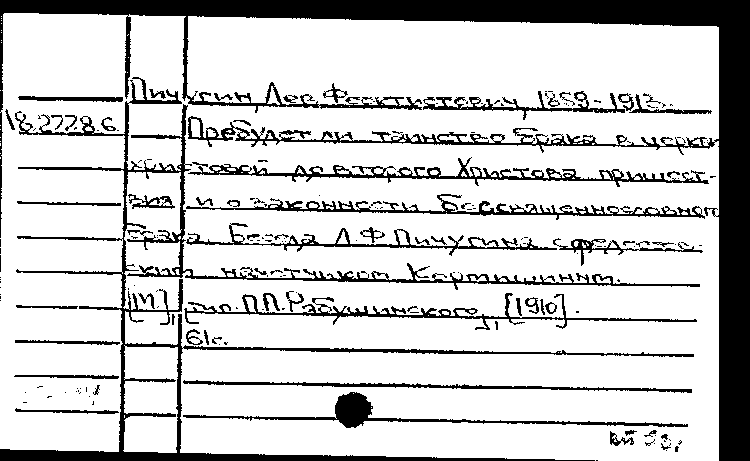 Пичугин, Лев Феоктистович, 1859-1913.
18.277.8.6 Пребудет ли таинство брака в церкви
христовой до второго Христова пришест-
вия и о законности бессвященнословного
брака. Беседа Л.Ф. Пичугина с
ским начетчиком
[М], тип. П.П. Рябушинского, [1910].
61с.